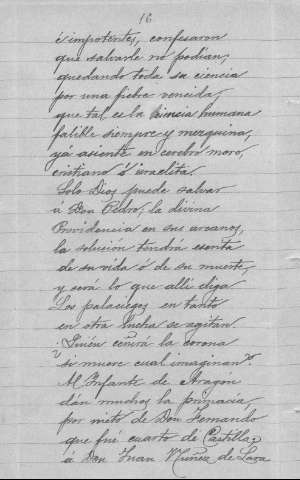 16
é impotentes, confesaron
que salvarle no podian;
quedando toda su ciencia
por una fiebre vencida,
que tal es la ciencia humana
falible siempre y mezquina,
yá asiente en cerebro moro,
cristiano ó israelita.
Solo Dios puede salvar
á Don Pedro; la divina
Providencia en sus arcanos,
la solución tendrá escrita
de su vida ó de su muerte,
y será lo que allí diga.
Los palaciegos en tanto
en otra lucha se agitan.
¿Quién ceñirá la corona
si muere cual imaginan?
Al Infante de Aragón
dán muchos la primacia,
por nieto de Don Fernando
que fué cuarto de Castilla;
á Don Juan Nuñez de Lara